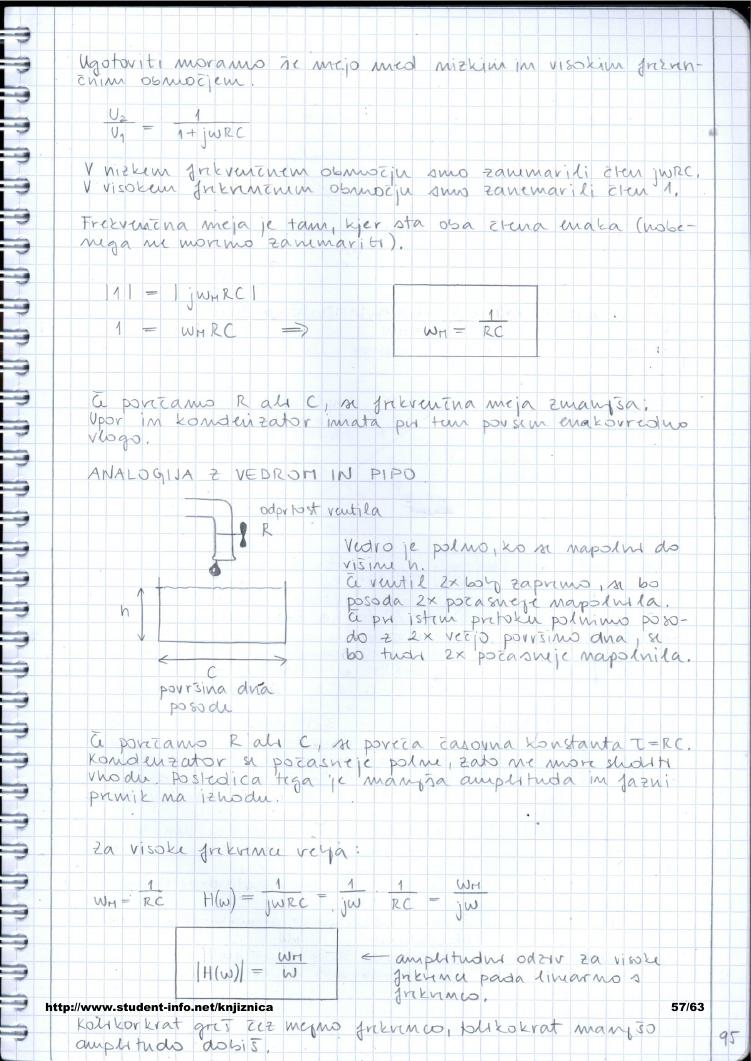 Ugotoviti moramo še mejo med nizkim in visokim frekven-
čnim območjem.
U₂/U₁ = 1/(1+jωRC)
V nizkem frekvenčnem območju smo zanemarili člen jωRC.
V visokem frekvenčnem območju smo zanemarili člen 1.
Frekvenčna meja je tam, kjer sta oba člena enaka (nobe-
nega ne moremo zanemariti).
|1| = |jω_M RC|
1 = ω_M RC ⇒ ω_M = 1/RC
Če povečamo R ali C, se frekvenčna meja zmanjša.
Upor in kondenzator imata pri tem povsem enakovredno
vlogo.
ANALOGIJA Z VEDROM IN PIPO
odprtost ventila
R
Vedro je polno, ko se napolni do
višine h.
Če ventil 2x bolj zapremo, se bo
posoda 2x počasneje napolnila.
Če pri istem pretoku polnimo poso-
do z 2x večjo površino dna, se
bo tudi 2x počasneje napolnila.
h
C
površina dna
posode
Če povečamo R ali C, se poveča časovna konstanta τ=RC.
Kondenzator se počasneje polni, zato ne more slediti
vhodu. Posledica tega je manjša amplituda in fazni
premik na izhodu.
Za visoke frekvence velja:
ω_M = 1/RC H(ω) = 1/jωRC = 1/jω · 1/RC = ω_M/jω
|H(ω)| = ω_M/ω
← amplitudni odziv za visoke
frekvence pada linearno s
frekvenco.
http://www.student-info.net/knjiznica 57/63
Kolikorkrat greš čez mejno frekvenco, tolikokrat manjšo
amplitudo dobiš.
95